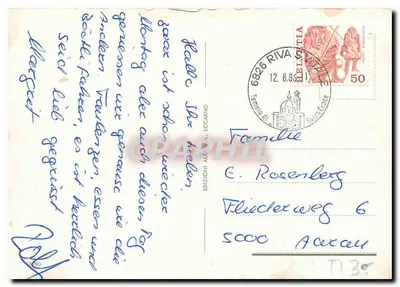 Hallo Ihr Lieben
zwar ist schon wieder
Montag aber auch diesen Tag
geniessen wir genauso wie die
Andern, Faulenzen, essen und
Böötli fahren, es ist herrlich
Seid lieb gegrüsst
Margret
Rolf
EDIZIONI ALFA LOCARNO
6826 RIVA S. VITALE
12. 8.85
Tempio di Santa Croce
HELVETIA
50
Familie
E. Rosenberg
Fliederweg 6
5000 Aarau